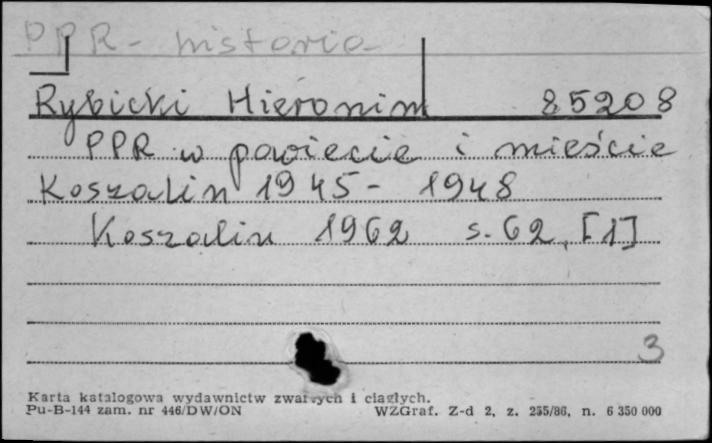 PPR - historia
Rybicki Hieronim 85208
PPR w powiecie i mieście
Koszalin 1945 - 1948
Koszalin 1962 s. 62, [1]
3
Karta katalogowa wydawnictw zwartych i ciągłych.
Pu-B-144 zam. nr 446/DW/ON WZGraf. Z-d 2, z. 255/86, n. 6 350 000